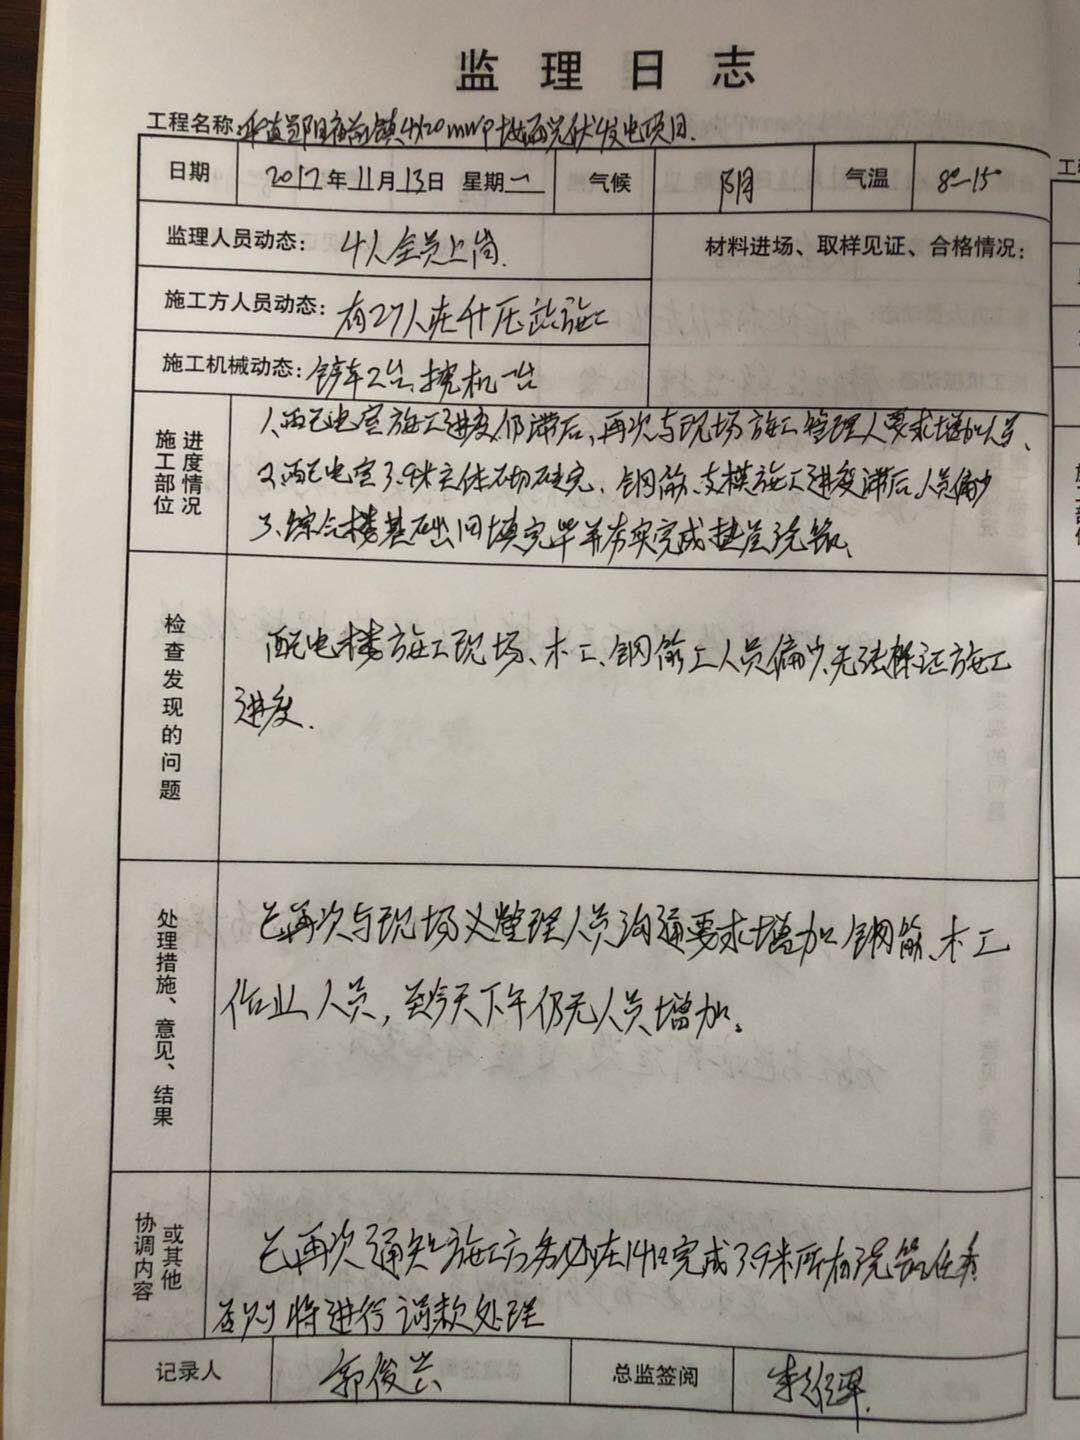 监理日志
工程名称: 4×20mwp 光伏发电项目
日期 2017年11月13日 星期一 气候 阴 气温 8°-15°
监理人员动态: 4人全员上岗. 材料进场、取样见证、合格情况:
施工方人员动态: 有27人在升压站施工
施工机械动态: 铲车2台、挖机一台
施工部位 进度情况
1、配电室施工进度仍滞后、再次与现场施工管理人要求增加人员、
2、配电室3.9米立体砌砖完、钢筋、支模施工进度滞后、人员偏少
3、综合楼基础回填完毕并夯实完成垫层浇筑、
检查发现的问题
配电楼施工现场、木工、钢筋工人员偏少,无法保证施工
进度.
处理措施、意见、结果
已再次与现场管理人员沟通要求增加钢筋、木工
作业人员,至今天下午仍无人员增加。
协调内容 或其他
已再次通知施工方务必在14日完成3.9米 浇筑任务
否则将进行罚款处理
记录人 郭俊兴 总监签阅